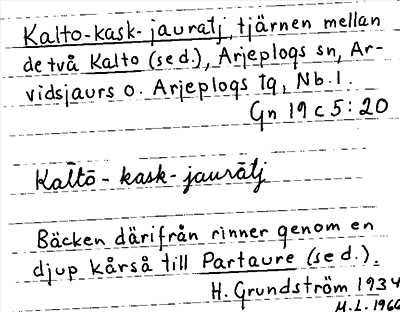 Kalto-kask-jauratj, tjärnen mellan
de två Kalto (se d.), Arjeplogs sn, Ar-
vidsjaurs o. Arjeplogs tg, Nb. l.
Gn 19 c 5:20
Kaltō - kask - jaurātj
Bäcken därifrån rinner genom en
djup kårså till Partaure (se d.).
H. Grundström 1934
M.L. 1966